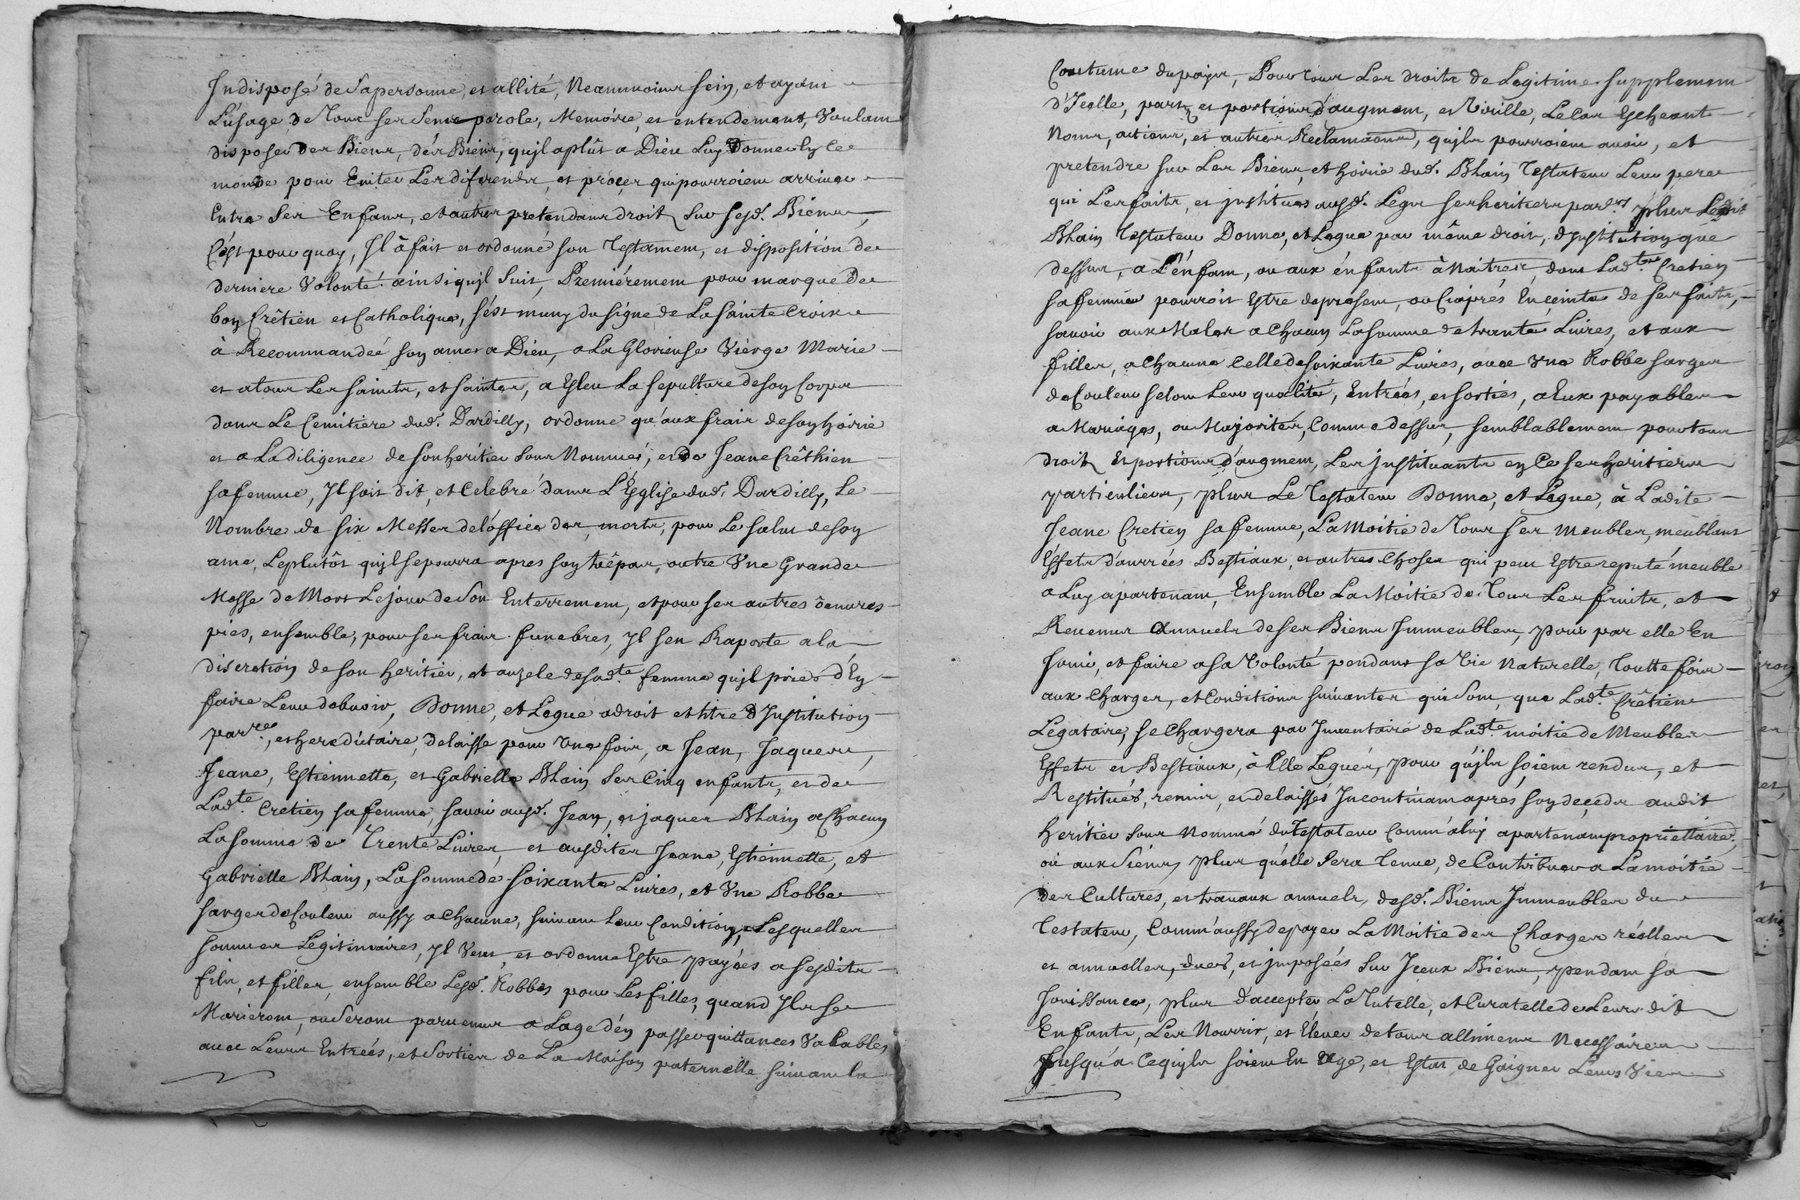 Indisposé de sa personne, et allité, Neanmoins sein, et ayant
L'úsage de Tous ses sens parole, Memoire, et entendement, Voulant
disposer des Biens, des Biens, qu'jl a plût a Dieu Luy Donner en ce
monde pour Eviter Les diferends, et procer qui pourroient arriver
Entre ses Enfans, et autres pretendans droit sur sesd. Biens,
C'est pourquoy, Jl â fait et ordonné son Testament, et disposition de
derniere Volonté ainsi qujl suit, Premiérement pour marque de
bon Crêtien et Catholique, s'ést muny du signe de La sainte Croix
à Recommandeé son ame a Dieu, a La Glorieuse Viérge Marie
et a tous Les saints, et saintes, a Esleu La sepulture de son Corps
dans Le Cemitiere dud. Dardilly, ordonne qu'aux frais de son hoirie
et a La diligence de son heritier sous Nommé, et de Jeane Crêthien
sa femme, Jl soit dit, et Celebré dans L'Église dud. Dardilly, Le
Nombre de six Messes de l'office des morts, pour Le salut de son
ame, Le plutôt qu'jl se pourra apres son trêpas, outre Vne Grande
Messe de Mors Le jour de son Enterrement, et pour ses autres ôeuvres
pies, ensemble, pour ses frais funebres, Jl s'en Raporte a la
discretion de son heritier, et au zele de sad.te femme qujl prie d'Ey
faire Leur debvoir, Donne, et Legue a droit et titre d'Institution
par.re, et hereditaire, delaisse pour Vne fois, a Jean, Jaques,
Jeane, Estiennette, et Gabrielle Blain ses Cinq enfants, et de
Lad.te Cretien sa femme, savoir ausd. Jean, et jaques Blain a Chacun
La somme de Trente Livres et ausdites Jeane, Estiennette, et
Gabrielle Blain, La somme de soixante Livres, et Vne Robbe
sarge de Couleur aussy a Chacune, suivant leur Condition, Lesquelles
sommes Legitimaires, jl Veut, et ordonne Estre payées a sesdits
fils, et filles, ensemble Lesd. Robbes pour Les filles, quand Jls se
Marieront, ou seront parvenus a L'age d'en passer quittances Valables
avec Leurs Entreés, et sorties de La Maison paternelle suivant la
Coutume du païs, Pour tous Les droits de Legitime supplement
d'Icelle, parts et portions d'augment, et Leges Escheants
Noms, actions, et autres Reclamaôns, qujls pourroient avoir, et
pretendre sur Les Biens, et hoirie dud. Blain Testateur Leur pere
qui Les faits, et jnstitues ausd. Legs ses heritiers par.rs plus Ledit
Blain Testateur Donne, et Legue par même droit, d'Institution que
dessus, a L'énfant, ou aux énfants à Naitre dont Lad.te Cretien
sa femme pourroit Estre a present, ou Ciaprés Enceinte de ses faits,
savoir aux Males a Chacun La somme de trante Livres, et aux
filles, a Chacune Celle de soixante Livres, avec Vne Robbe sarge
de Couleur selon Leur qualité, Entreés, et sorties, a Eux payables
a Mariages, ou Majorités, Comme dessus, semblablement pour tous
droits et portions d'augment, Les jnstituants en Ce ses heritiers
particuliers, plus Le Testateur Donne, et Légue, à Ladite
Jeane Cretien sa femme, La Moitie de Tous ses Meubles, meublans
Effets danrrées Bestiaux, et autres Choses qui peut Estre reputé meuble
a Luy apartenant, Ensemble La Moitie de Tous Les fruits, et
Revenus annuels de ses Biens Jmmeubles, pour par elle En
Jouir, et faire a sa Volonté pendant sa Vie Naturelle, Toutte fois
aux Charges, et Conditions suivantes qui sont, que Lad.te Crêtien
Légataire, se Chargera par Jnventaire de Lad.te moitie de Meubles
Effets et Bestiaux, à Elle Legués, pour qu'jls soient rendus, et
Restitués, remis, et delaissés Jncontinant aprés son deceds audit
heritier sous nommé du Testateur Comm'a luy apartenant proprietaire,
ou aux siens, plus qu'elle sera Tenue, de Contribuer a La moitié
des Cultures, et travaux annuels, desd. Biens Jmmeubles du
Testateur, Comm'aussy de payer La Moitie des Charges réelles
et annuelles, dues, et jmposées sur Jceux Biens, pendant sa
Jouissance, plus d'accepter La Tutelle, et Curatelle de Leurs dit
Enfants, Les Nourrir, et Elever de tous alliments Necessaires
Jusqu'a Ce qujls soient En age, et Estat de Gaigner Leurs Vies